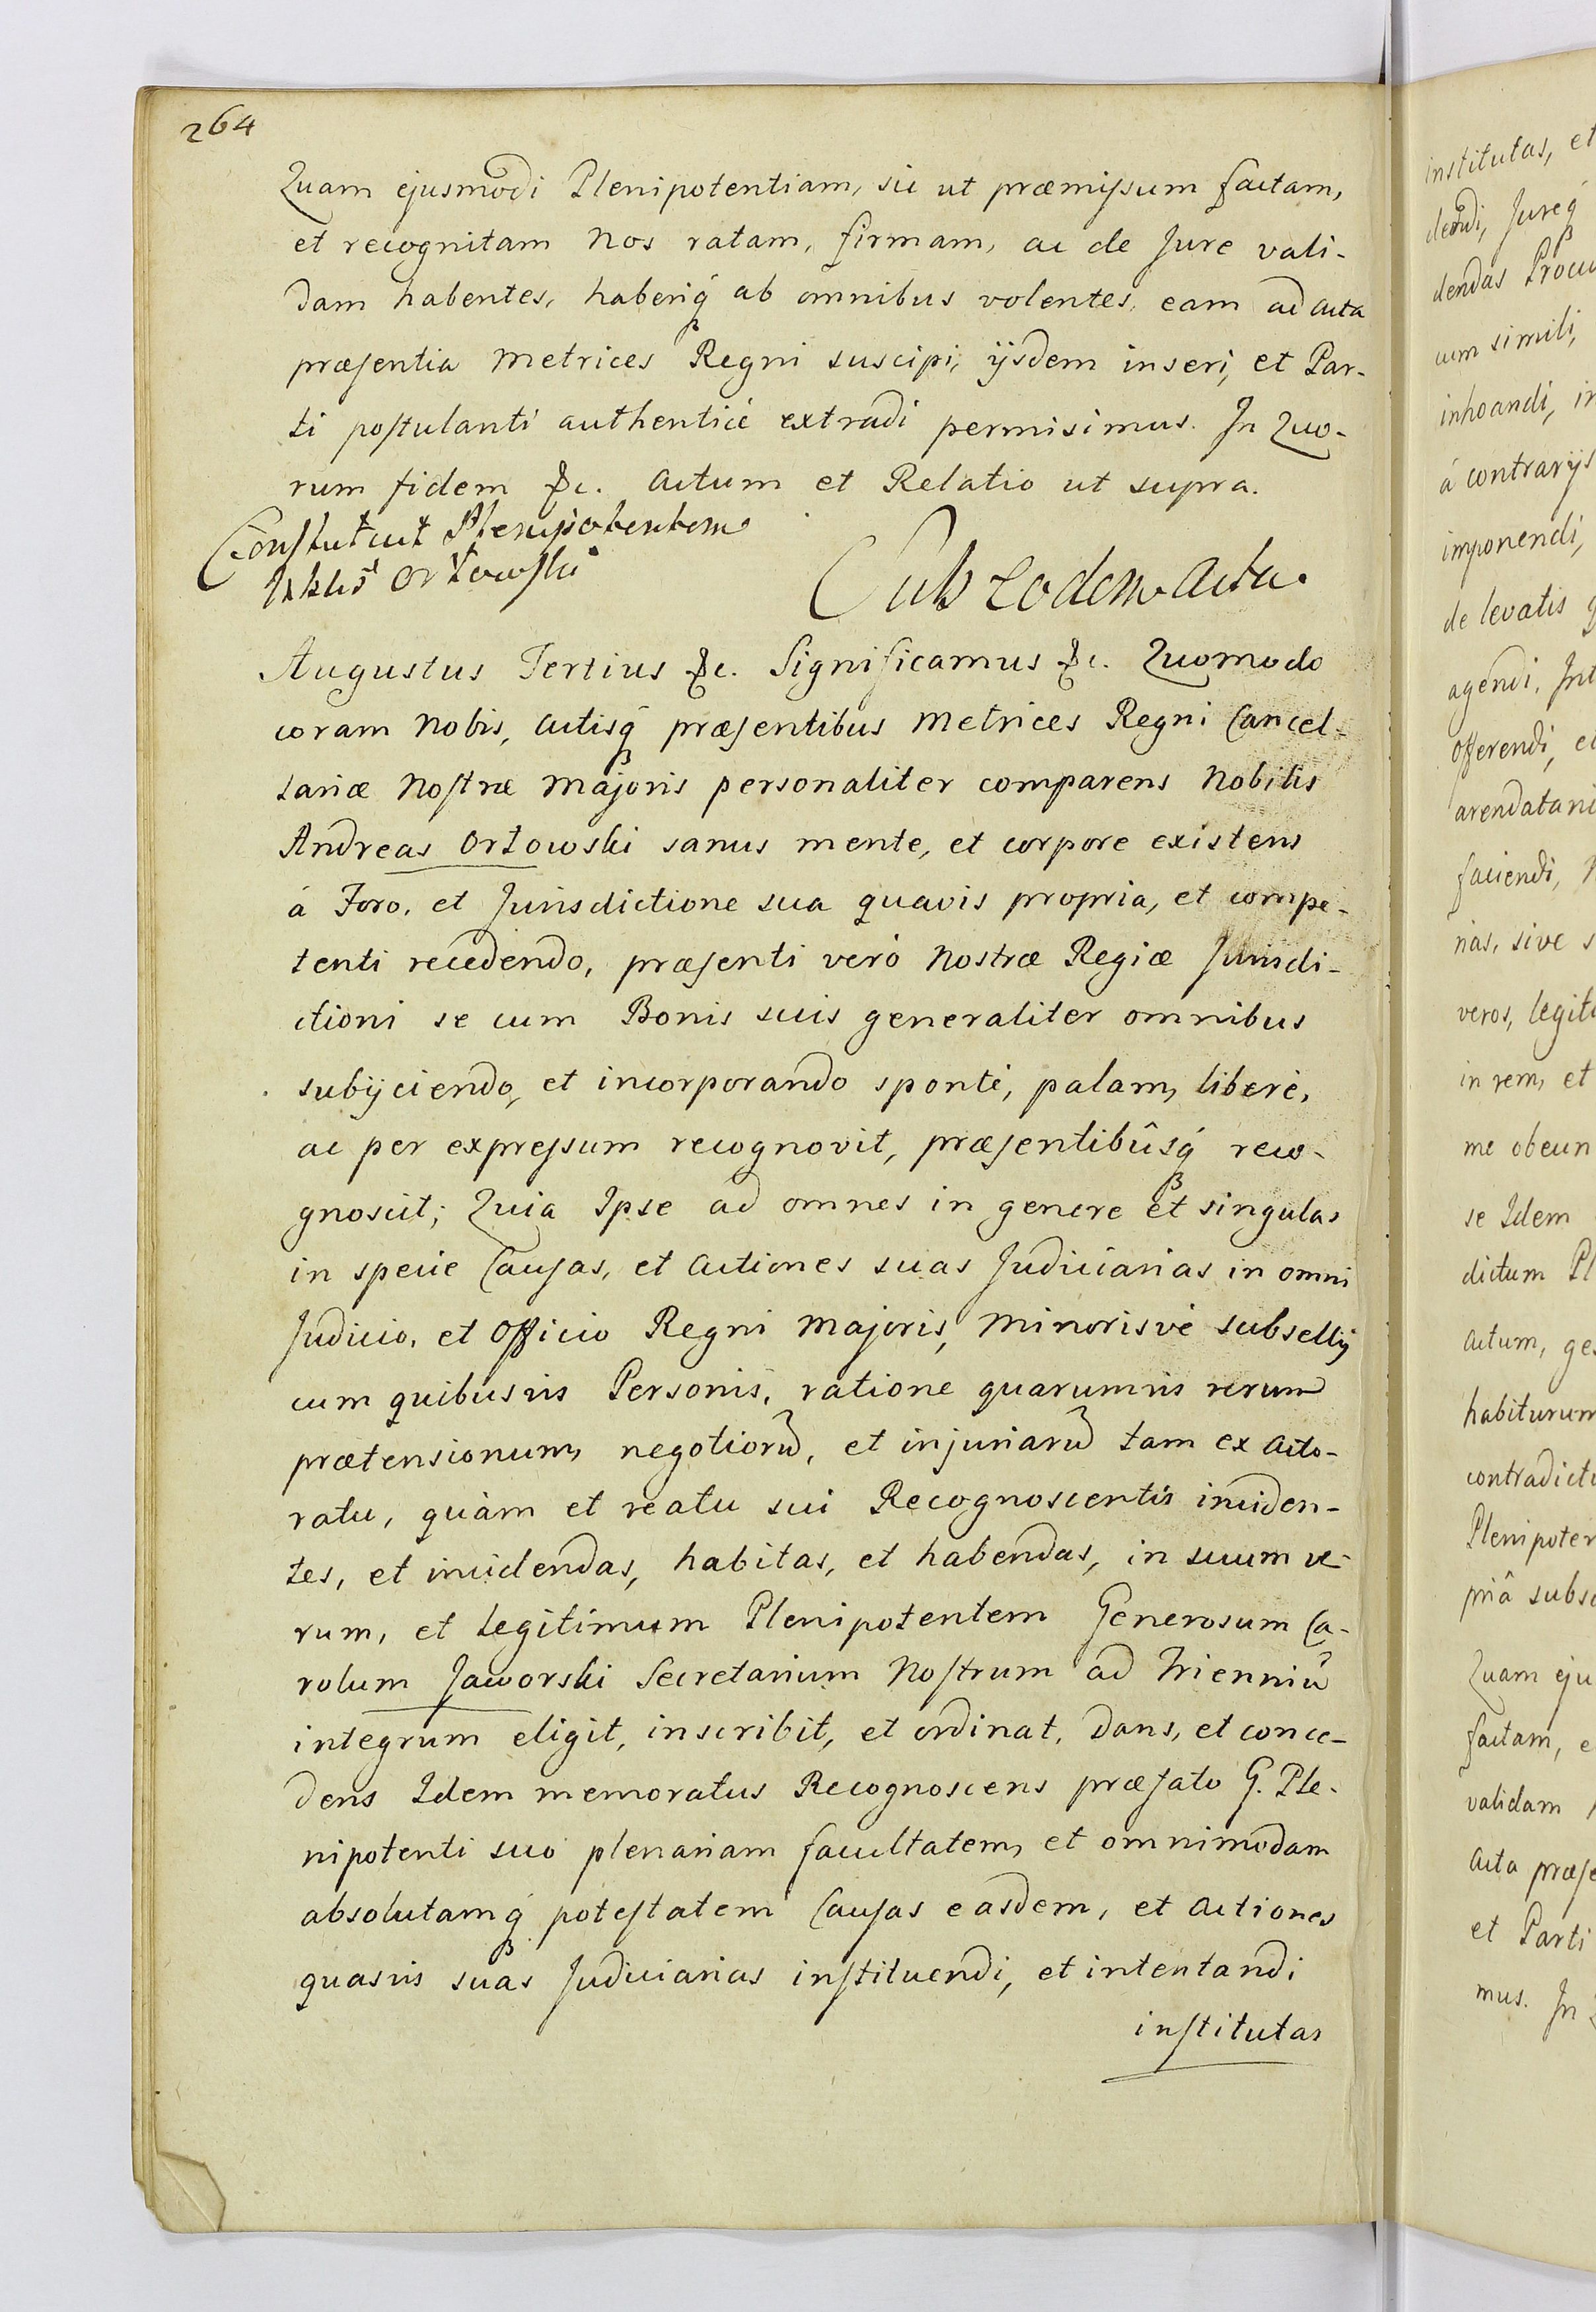 264
Quam ejusmodi Plenipotentiam, sic ut præmissum factam,
et recognitam Nos ratam, firmam, ac de Jure vali-
dam habentes, haberiq́ꝫ ab omnibus volentes, eam ad acta
præsentia Metrices Regni suscipi, ijsdem inseri, et Par-
ti postulanti authenticè extradi permisimus. In Quo-
rum fidem &c. Actum et Relatio ut supra.
Constituit Plenipotentem
Orłowski
Sub eodem Actu.
Augustus Tertius &c. Significamus &c. Quomodo
coram Nobis, Actisq́ꝫ præsentibus Metrices Regni Cancel-
lariæ Nostræ Majoris personaliter comparens Nobilis
Andreas Orłowski sanus mente, et corpore existens
á Foro, et Jurisdictione sua quavis propria, et compe-
tenti recedendo, præsenti veró Nostræ Regiæ Jurisdi-
ctioni se cum Bonis suis generaliter omnibus
subijciendo, et incorporando sponté, palam, liberé,
ac per expressum recognovit, præsentibûsq́ꝫ reco-
gnoscit; Quia Ipse ad omnes in genere et singulas
in specie Causas, et Actiones suas Judiciarias in omni
Judicio, et Officio Regni Majoris, Minorisvé subsellij
cum quibusvis Personis, ratione quarumvis rerum
prætensionum, negotiorū, et injuriarū tam ex Acto-
ratu, quàm et reatu sui Recognoscentis inciden-
tes, et incidendas, habitas, et habendas, in suum ve-
rum, et legitimum Plenipotentem Generosum Ca-
rolum Jaworski Secretarium Nostrum ad Trienniū
integrum eligit, inscribit, et ordinat. Dans, et conce-
dens Idem memoratus Recognoscens præfato G. Ple-
nipotenti suo plenariam facultatem, et omnimodam
absolutamq́ꝫ potestatem Causas easdem, et Actiones
quasvis suas Judiciarias instituendi, et intentandi
institutas
institutas, et
dendi, Jureq́ꝫ
dendas
cum simili,
inhoandi,
á contrarijs
imponendi,
de levatis
agendi,
offerendi,
faciendi,
rias, sive
veros,
in rem, et
se Idem
dictum
Actum,
habiturum
subs
Quam
factam,
validam
Acta
et Parti
mus. In